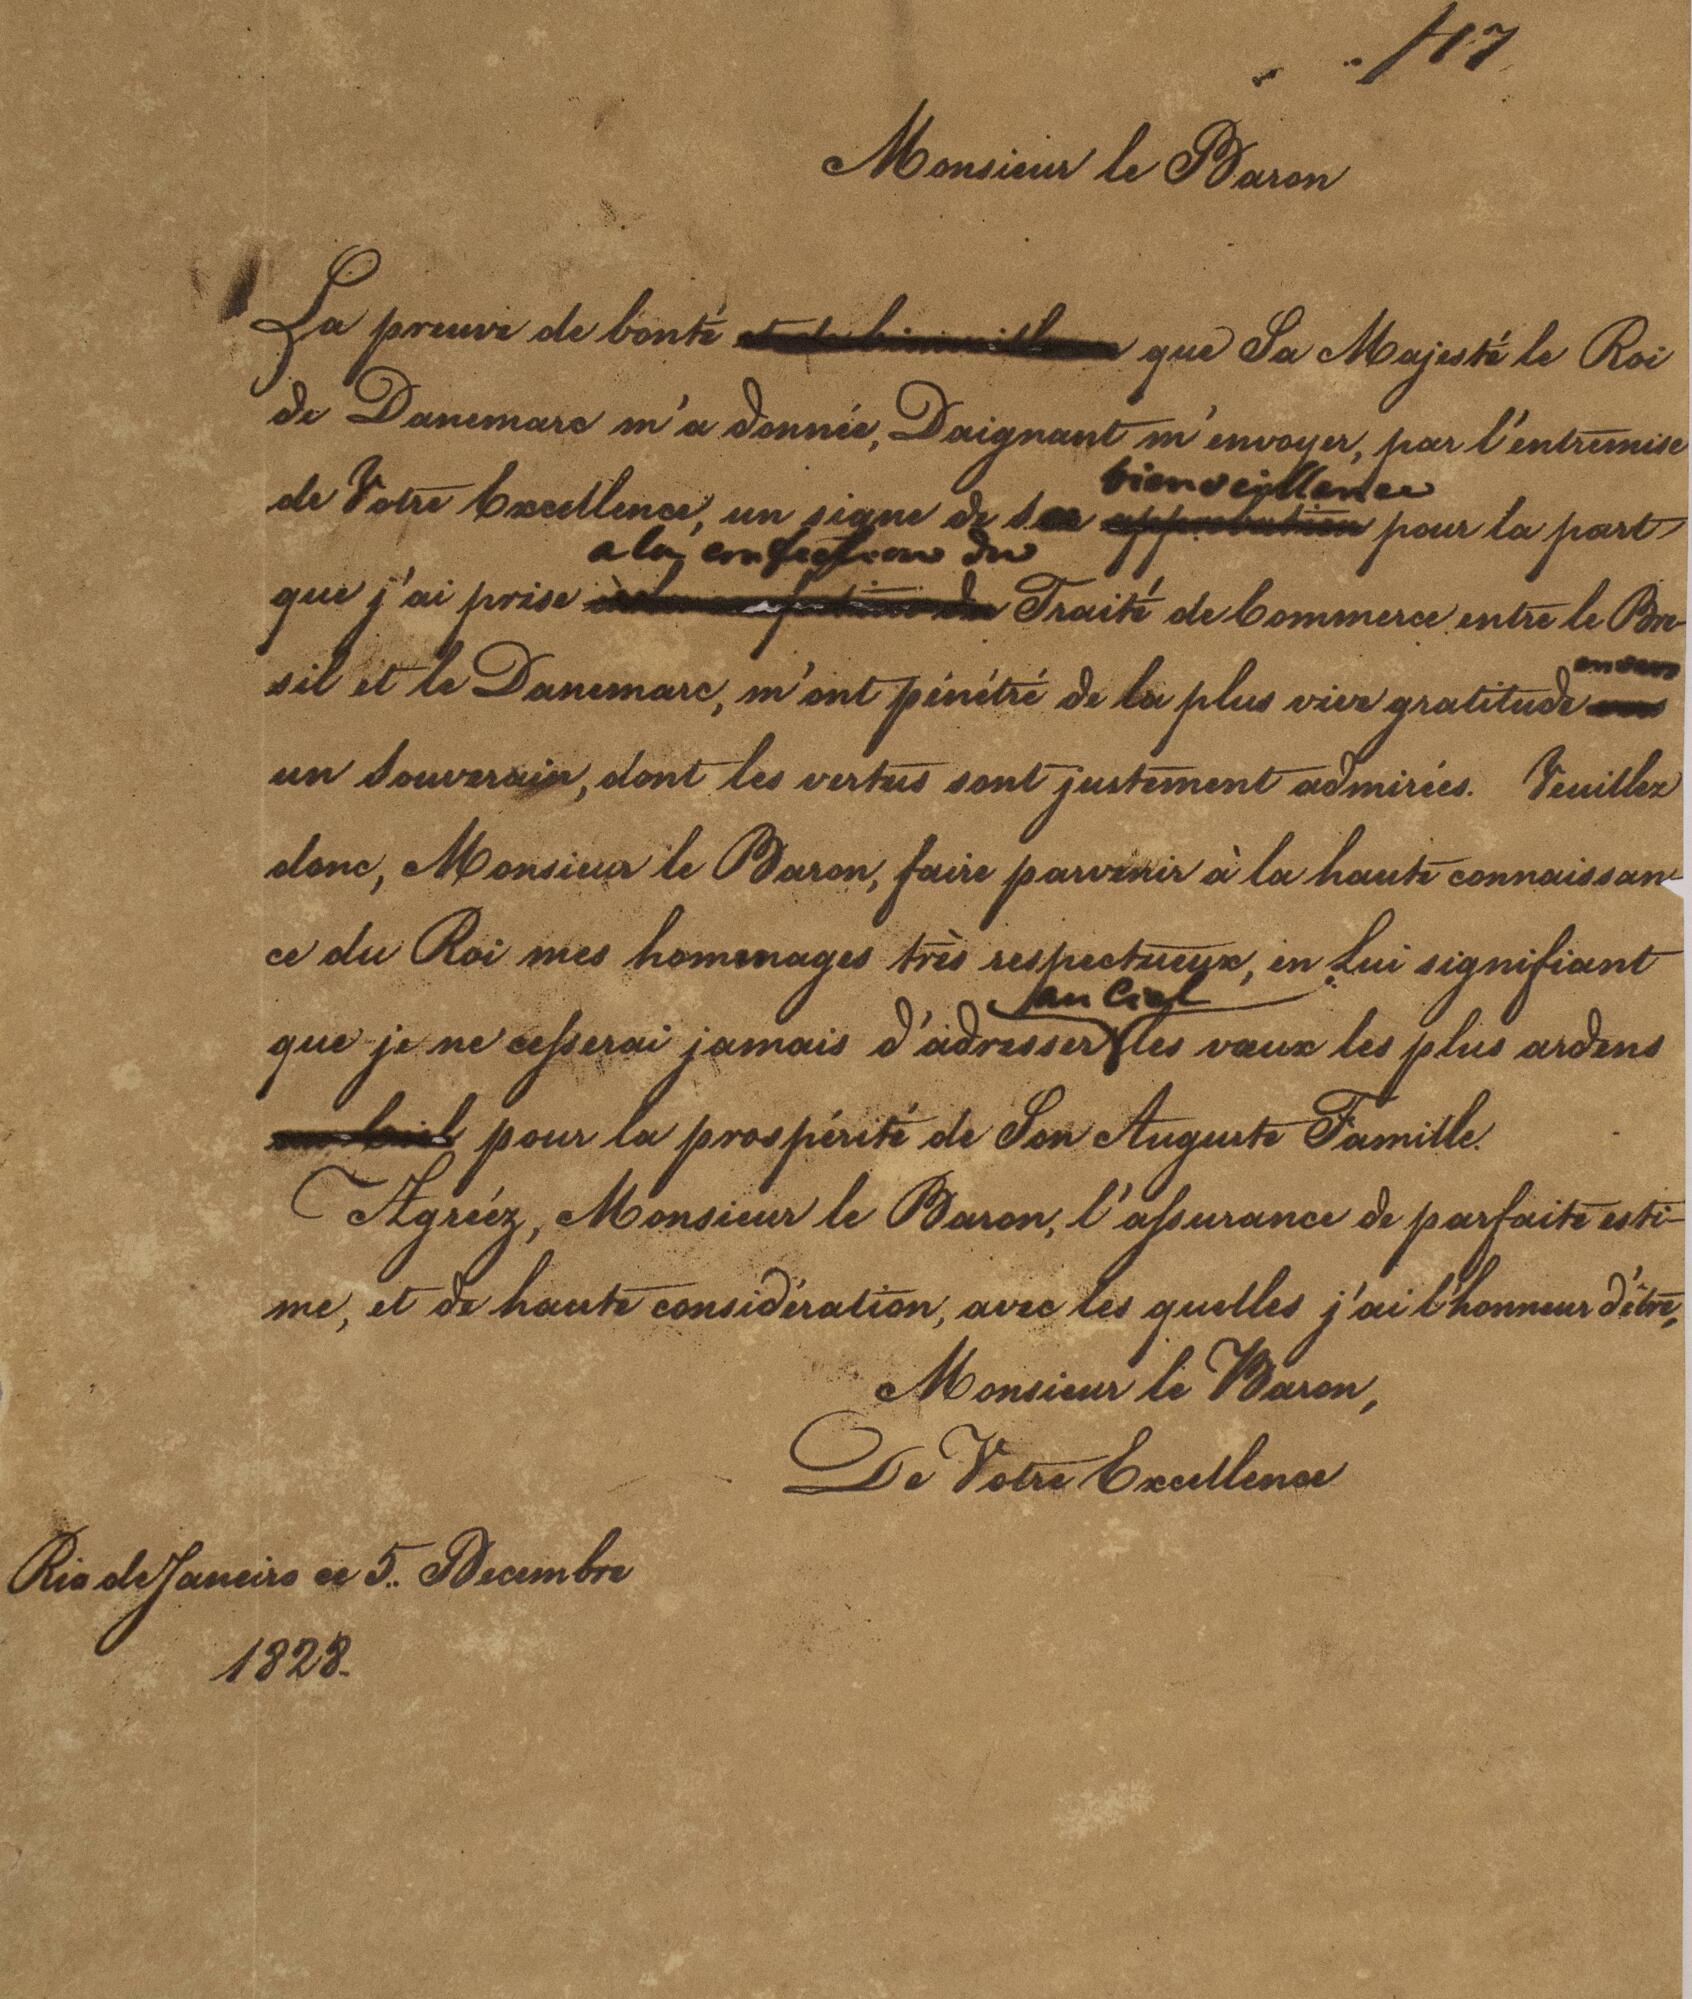 117
Monsieur le Baron
La preuve de bonté et de bienveillance que Sa Majesté le Roi
de Danemarc m'a donnée, Daignant m'envoyer, par l'entremise
bienveillance
de Votre Excellence, un signe de sa approbation pour la part
a la confection du
que j'ai prise à la confection du Traité de Commerce entre le Bre-
envers
sil et le Danemarc, m'ont pénétré de la plus vive gratitude
un Souverain, dont les vertus sont justement admirées. Veuillez
donc, Monsieur le Baron, faire parvenir à la haute connaissan-
ce du Roi mes homenages très respectueux, en Lui signifiant
au Ciel
que je ne cesserai jamais d'adresser les vœux les plus ardens
au Ciel pour la prospérité de Son Auguste Famille.
Agréez, Monsieur le Baron, l'assurance de parfaite esti-
me, et de haute considération, avec les quelles j'ai l'honneur d'être,
Monsieur le Baron,
De Votre Excellence
Rio de Janeiro ce 5.. Decembre
1828.